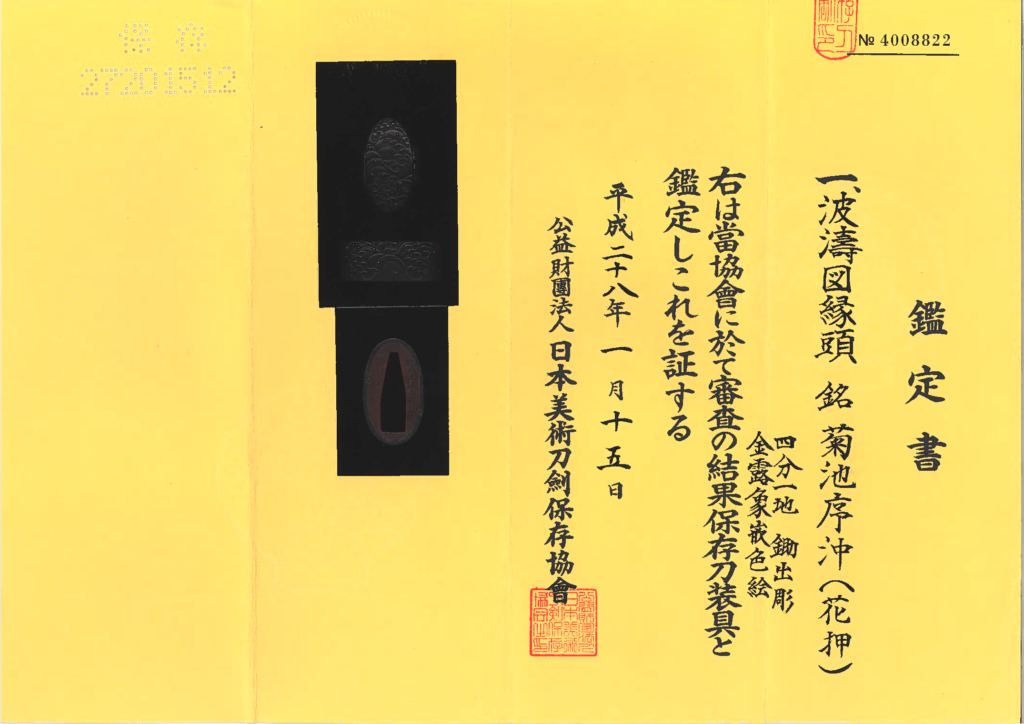 № 4008822
鑑定書
一、波濤図縁頭 銘 菊池序沖(花押)
四分一地 鋤出彫
金露象嵌色絵
右は當協會に於て審査の結果保存刀装具と
鑑定しこれを証する
平成二十八年一月十五日
公益財團法人日本美術刀劍保存協會
保存
27201512